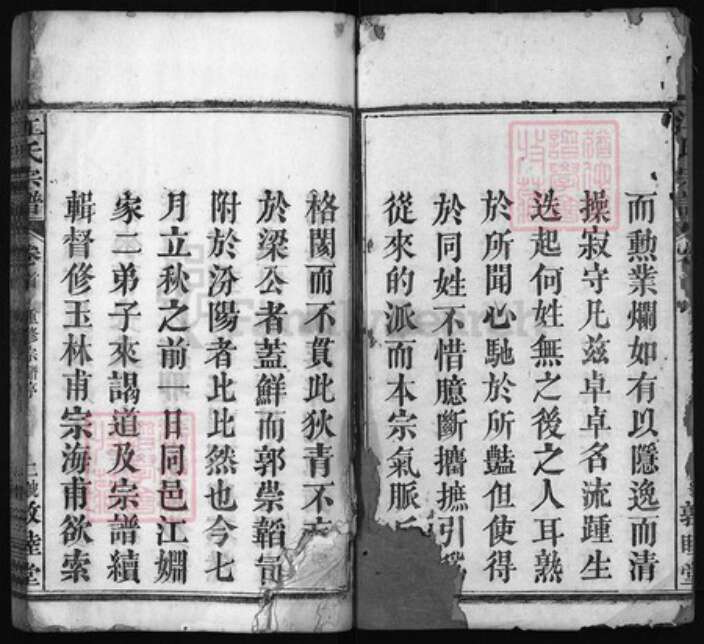 而勲業爛如有以隱逸而清
操寂守凡兹卓卓名流踵生
迭起何姓無之後之人耳熟
於所聞心馳於所豔但使得
於同姓不惜臆斷攟摭引爲
從來的派而本宗氣脈
格閡而不貫此狄青不
於梁公者蓋鮮而郭崇韜
附於汾陽者比比然也今七
月立秋之前一日同邑江嫺
家二弟子來謁道及宗譜續
輯督修玉林甫宗海甫欲索
江氏宗譜
卷首
重修宗譜序
敦睦堂
敦睦堂